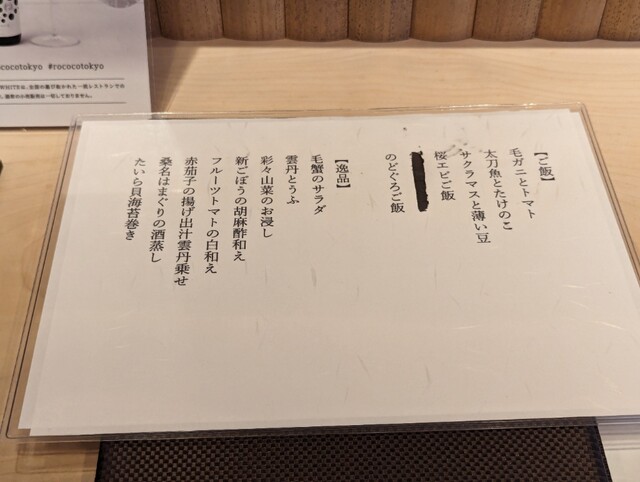 ococotokyo #rococotokyo
【ご飯】
毛ガニとトマト
太刀魚とたけのこ
サクラマスと薄い豆
桜エビご飯
のどぐろご飯
【逸品】
毛蟹のサラダ
雲丹とうふ
彩々山菜のお浸し
新ごぼうの胡麻酢和え
フルーツトマトの白和え
赤茄子の揚げ出汁雲丹乗せ
桑名はまぐりの酒蒸し
たいら貝海苔巻き